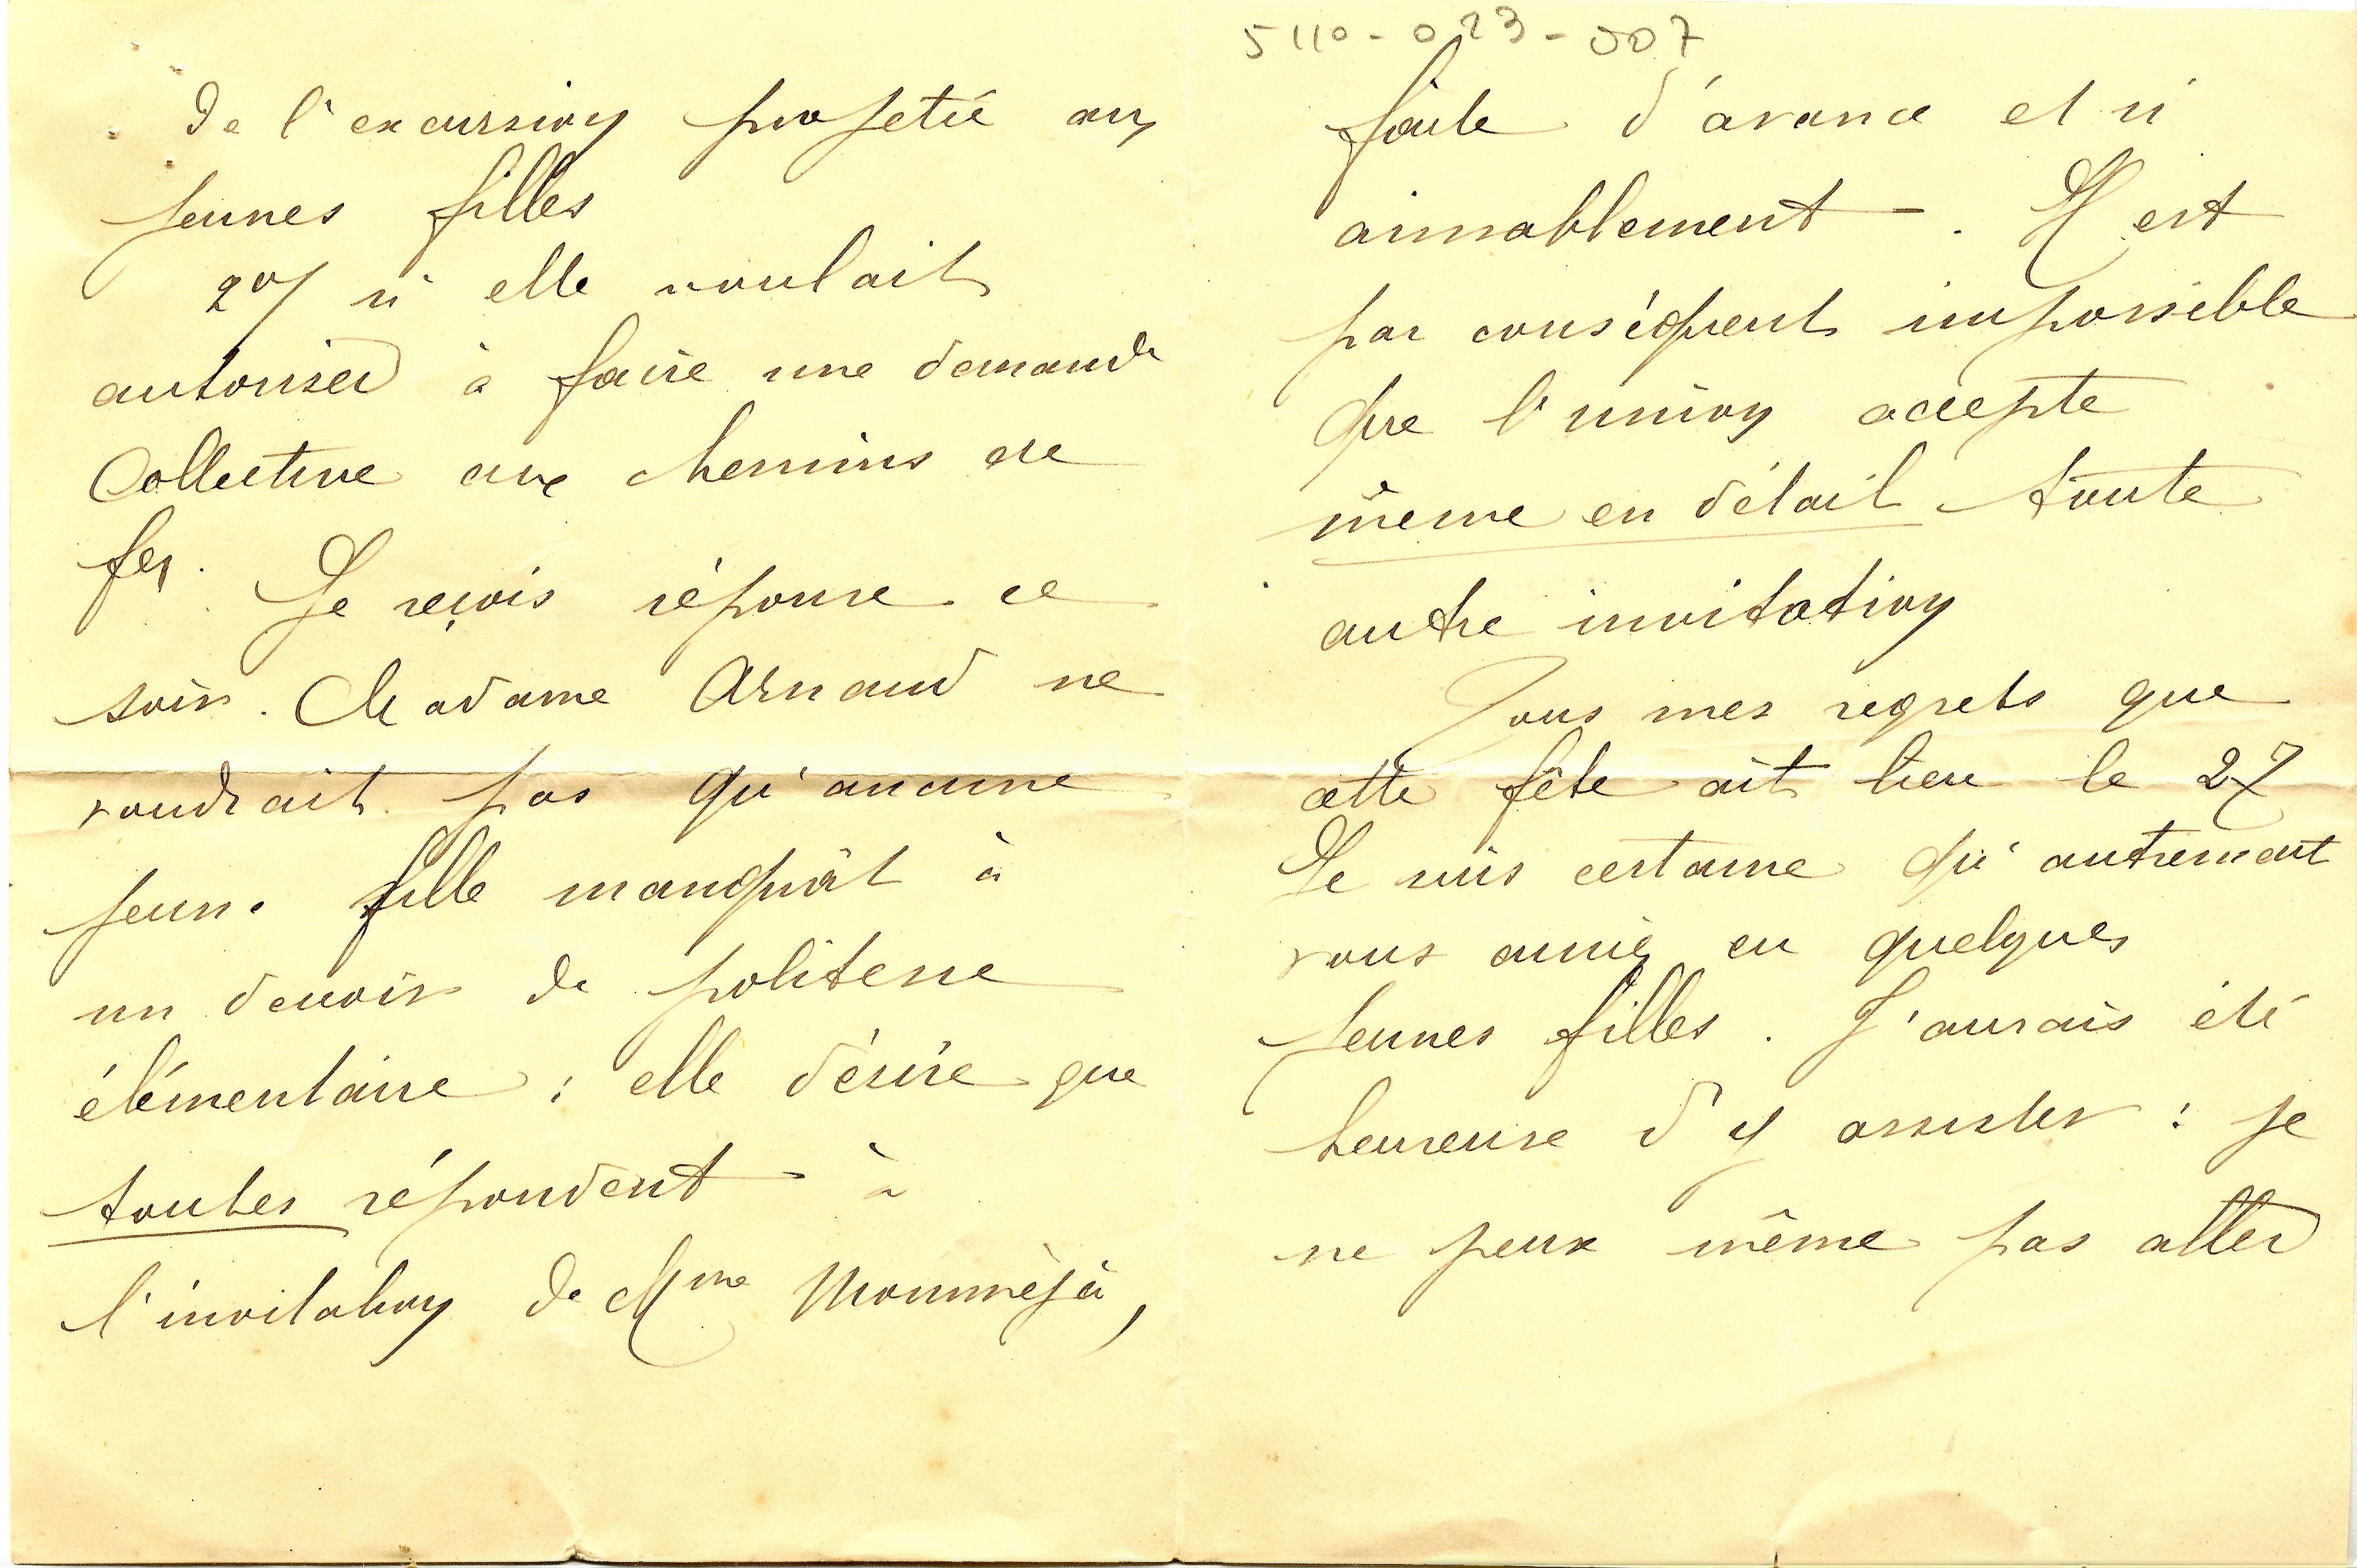 5110-023-007
de l'excursion projetée aux
jeunes filles
2°/ si elle voulait
autoriser à faire une demande
Collective aux chemins de
fer. Je reçois réponse ce
soir. Madame Arnaud ne
voudrait pas qu'aucune
jeune fille manquât à
un devoir de politesse
élémentaire : elle désire que
toutes répondent à
l'invitation de Mme Momméjà,
faite d'avance et si
aimablement. Il est
par conséquent impossible
que l'union accepte
même en détail toute
autre invitation
Tous mes regrets que
cette fête ait lieu le 27
Je suis certaine qu'autrement
vous auriez eu quelques
jeunes filles. J'aurais été
heureuse d'y assister : je
ne peux même pas aller